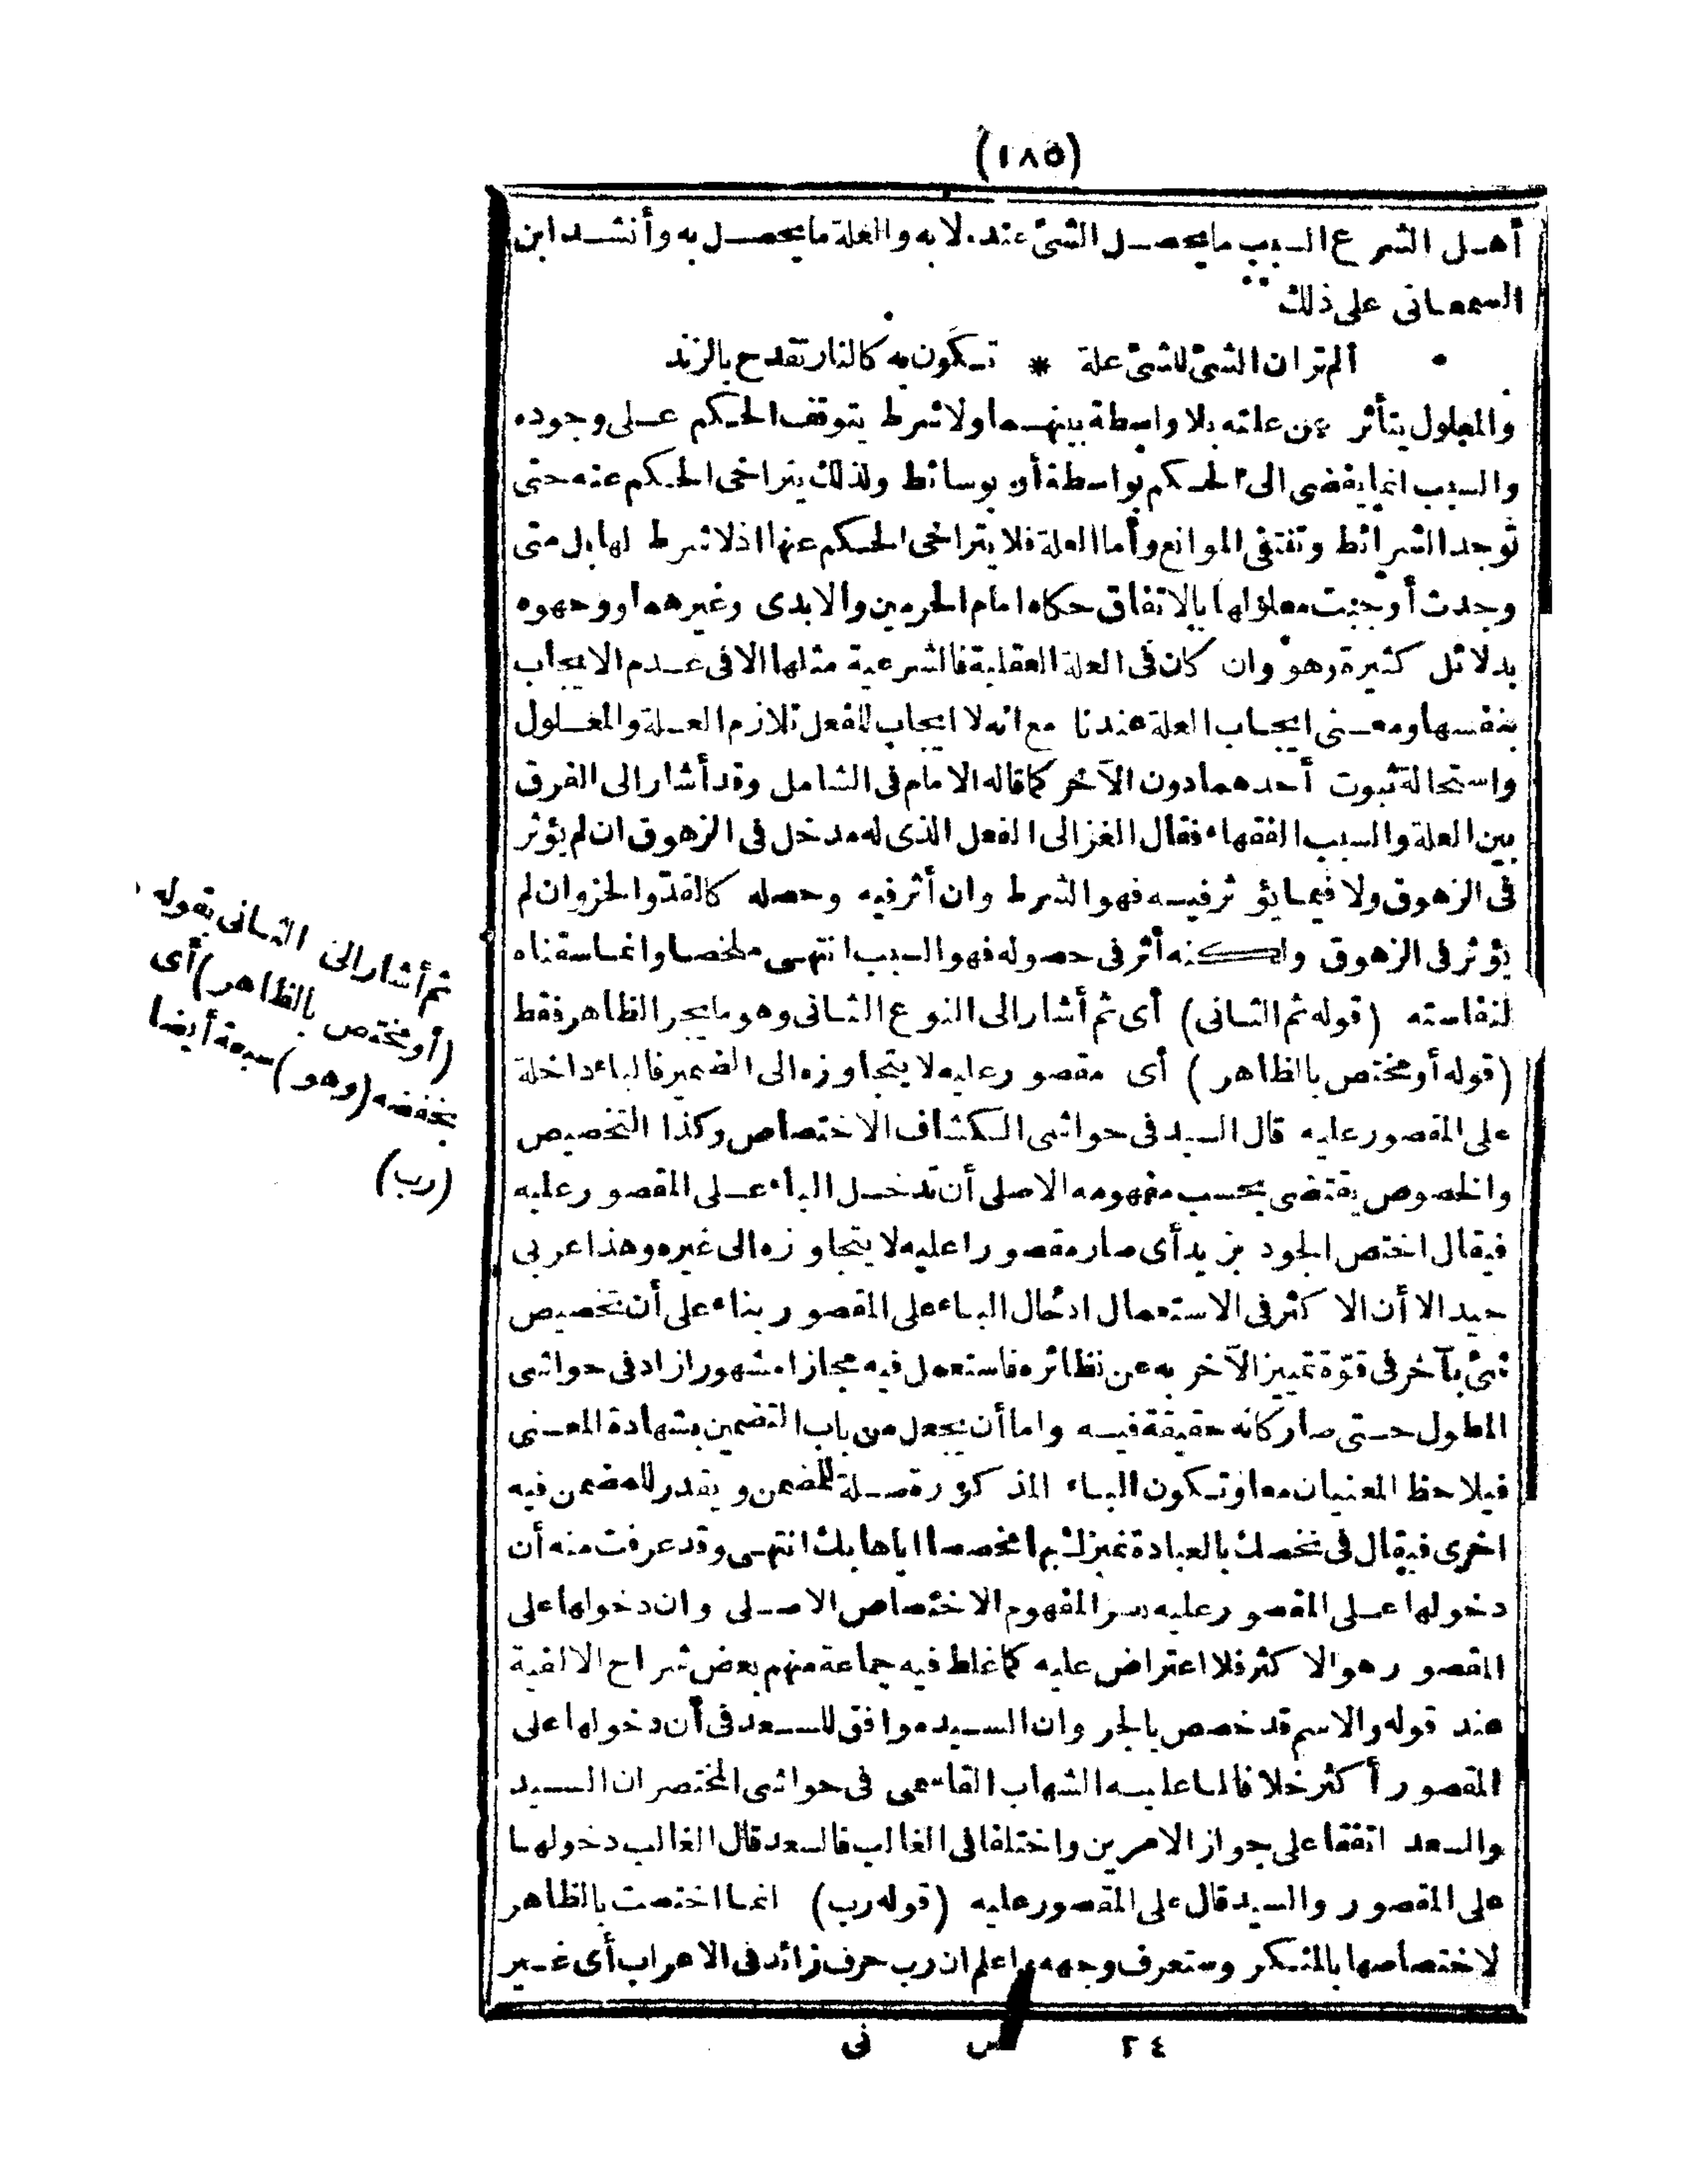 (١٨٥)
أهل الشرع السبب ما يحصل الشئ عنده لا به والعلة ما يحصل به وأنشد ابن
السمعانى على ذلك
ألم تر ان الشئ للشئ علة * تكون به كالنار تقدح بالزند
والمعلول يتأثر عن علته بلا واسطة بينهما ولا شرط يتوقف الحكم على وجوده
والسبب انما يفضى الى الحكم بواسطة أو بوسائط ولذلك يتراخى الحكم عنه حتى
توجد الشرائط وتنتفى الموانع وأما العلة فلا يتراخى الحكم عنها اذ لا شرط لها بل متى
وجدت أوجبت معلولها بالاتفاق حكاه امام الحرمين والابدى وغيرهما ووجهوه
بدلائل كثيرة وهو وان كان فى العلة العقلية فالشرعية مثلها الا فى عدم الايجاب
بنفسها ومعنى ايجاب العلة عندنا مع انه لا ايجاب للفعل تلازم العلة والمعلول
واستحالة ثبوت أحدهما دون الآخر كما قاله الامام فى الشامل وقد أشار الى الفرق
بين العلة والسبب الفقهاء فقال الغزالى الفعل الذى له مدخل فى الزهوق ان لم يؤثر
فى الزهوق ولا فيما يؤثر فيه فهو الشرط وان أثر فيه وحصله كالقدّ والحز وان لم
يؤثر فى الزهوق ولكنه أثر فى حصوله فهو السبب انتهى ملخصا وانما سقناه
لنفاسته (قوله ثم الثانى) أى ثم أشار الى النوع الثانى وهو ما يجر الظاهر فقط
(قوله أو مختص بالظاهر) أى مقصور عليه لا يتجاوزه الى الضمير فالباء داخلة
على المقصور عليه قال السيد فى حواشى الكشاف الاختصاص وكذا التخصيص
والخصوص يقتضى بحسب مفهومه الاصلى أن تدخل الباء على المقصور عليه
فيقال اختص الجود بزيد أى صار مقصورا عليه لا يتجاوزه الى غيره وهذا عربى
جيد الا أن الاكثر فى الاستعمال ادخال الباء على المقصور بناء على أن تخصيص
شئ بآخر فى قوّة تمييز الآخر به عن نظائره فاستعمل فيه مجازا مشهورا زاد فى حواشى
المطول حتى صار كانه حقيقة فيه واما أن يجعل من باب التضمين بشهادة المعنى
فيلاحظ المعنيان معا وتكون الباء المذكورة صلة للمضمن ويقدر للمضمن فيه
اخرى فيقال فى نخصك بالعبادة نميزك بها مخصصا اياها بك انتهى وقد عرفت منه أن
دخولها على المقصور عليه سر المفهوم الاختصاص الاصلى وان دخولها على
المقصور هو الاكثر فلا اعتراض عليه كما غلط فيه جماعة منهم بعض شراح الالفية
عند قوله والاسم قد خصص بالجر وان السيد موافق للسعد فى أن دخولها على
المقصور أكثر خلافا لما عليه الشهاب القاسمى فى حواشى المختصر ان السيد
والسعد اتفقا على جواز الامرين واختلفا فى الغالب فالسعد قال الغالب دخولها
على المقصور والسيد قال على المقصور عليه (قوله رب) انما اختصت بالظاهر
لاختصاصها بالمنكر وستعرف وجهه واعلم ان رب حرف زائد فى الاعراب أى غير
٢٤ س فى
ثم أشار الى الثانى بقوله
(أو مختص بالظاهر) أى
بخفضه (وهو) سبعة أيضا
(رب)